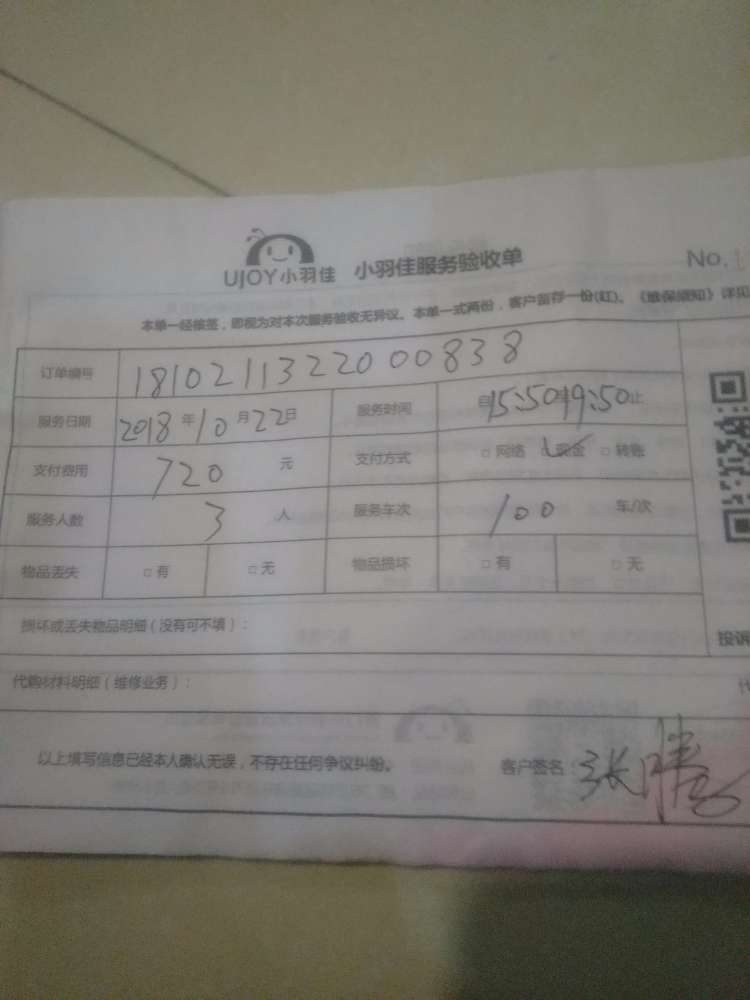 UJOY小羽佳 小羽佳服务验收单 No.1
本单一经接签，即视为对本次服务验收无异议。本单一式两份，客户留存一份(红)。《维保须知》详见
订单编号 1810211322000838
服务日期 2018年10月22日 服务时间 自15:50 19:50止
支付费用 720 元 支付方式 □网络 ☑现金 □转账
服务人数 3 人 服务车次 100 车/次
物品丢失 □有 □无 物品损坏 □有 □无
损坏或丢失物品明细（没有可不填）：
投诉
代购材料明细（维修业务）：
以上填写信息已经本人确认无误，不存在任何争议纠纷。 客户签名：张腾